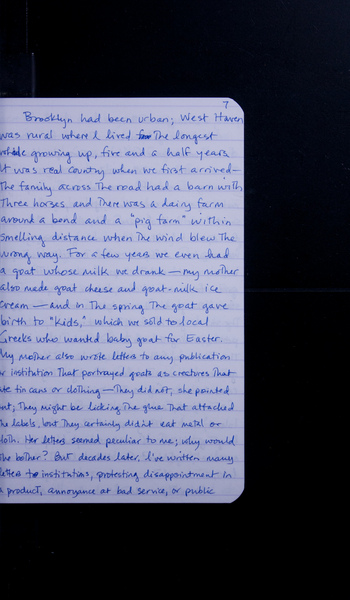 7
Brooklyn had been urban; West Haven
was rural where I lived for the longest
while growing up, five and a half years.
It was real country when we first arrived—
the family across the road had a barn with
three horses and there was a dairy farm
around a bend and a "pig farm" within
smelling distance when the wind blew the
wrong way. For a few years we even had
a goat whose milk we drank—my mother
also made goat cheese and goat-milk ice
cream—and in the spring the goat gave
birth to "kids," which we sold to local
Greeks who wanted baby goat for Easter.
My mother also wrote letters to any publication
or institution that portrayed goats as creatures that
ate tin cans or clothing—They did not, she pointed
out; they might be licking the glue that attached
the labels, but they certainly didn't eat metal or
cloth. Her letters seemed peculiar to me; why would
she bother? But decades later, I've written many
letters to institutions, protesting disappointment in
a product, annoyance at bad service, or public